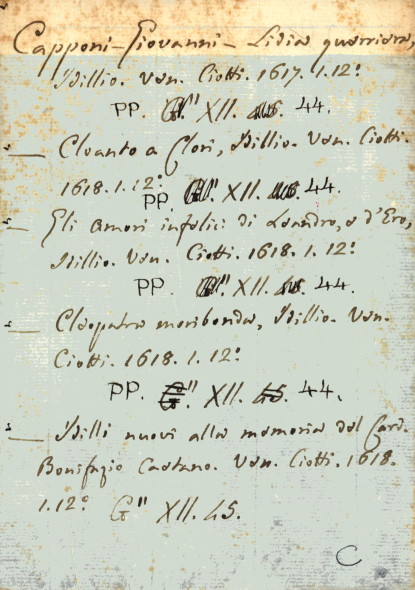 Capponi - Giovanni - Lidia guerriera,
Idillio. Ven. Ciotti. 1617. 1. 12°
PP. G" XII. 44.
— Cloanto a Clori, Idillio. Ven. Ciotti.
1618. 1. 12°
PP. XII. 44.
— Gli amori infelici di Leandro, e d'Ero,
Idillio. Ven. Ciotti. 1618. 1. 12°
PP. XII. 44.
— Cleopatra moribonda, Idillio. Ven.
Ciotti. 1618. 1. 12°
PP. G" XII. 45. 44.
— Idilli nuovi alla memoria del Card.
Bonifazio Caetano. Ven. Ciotti. 1618.
1. 12° G" XII. 45.
C